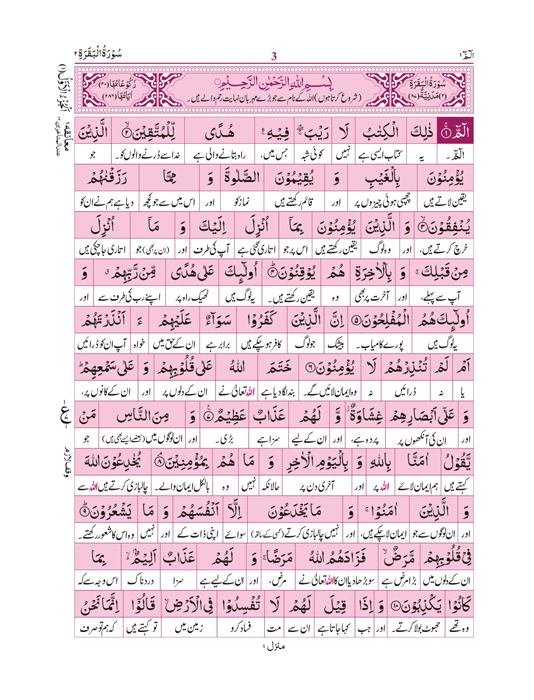 الٓمّٓ ۱
3
سُوْرَةُ الْبَقَرَةِ ۲
سُوْرَةُ الْبَقَرَةِ
بِسْمِ اللهِ الرَّحْمٰنِ الرَّحِيْمِ
(شروع کرتا ہوں) اللہ کے نام سے جو بڑے مہربان نہایت رحم والے ہیں۔
الٓمّٓ ۚ﴿۱﴾ ذٰلِكَ الْكِتٰبُ لَا رَيْبَ ۛ فِيْهِ ۛ هُدًى لِّلْمُتَّقِيْنَ ۙ﴿۲﴾ الَّذِيْنَ
الٓمّٓ۔ یہ کتاب ایسی ہے نہیں کوئی شبہ جس میں، راہ بتانے والی ہے خدا سے ڈرنے والوں کو۔ جو
يُؤْمِنُوْنَ بِالْغَيْبِ وَ يُقِيْمُوْنَ الصَّلٰوةَ وَ مِمَّا رَزَقْنٰهُمْ
یقین لاتے ہیں چھپی ہوئی چیزوں پر اور قائم رکھتے ہیں نماز کو اور اس میں سے جو کچھ دیا ہے ہم نے ان کو
يُنْفِقُوْنَ ۙ﴿۳﴾ وَ الَّذِيْنَ يُؤْمِنُوْنَ بِمَآ اُنْزِلَ اِلَيْكَ وَ مَآ اُنْزِلَ
خرچ کرتے ہیں، اور وہ لوگ یقین رکھتے ہیں اس پر جو اتاری گئی ہے آپ کی طرف اور (ان پر بھی) جو اتاری جا چکی ہیں
مِنْ قَبْلِكَ ۚ وَ بِالْاٰخِرَةِ هُمْ يُوْقِنُوْنَ ؕ﴿۴﴾ اُولٰٓئِكَ عَلٰى هُدًى مِّنْ رَّبِّهِمْ ۗ وَ
آپ سے پہلے، اور آخرت پر بھی وہ یقین رکھتے ہیں۔ یہ لوگ ہیں ٹھیک راہ پر اپنے رب کی طرف سے اور
اُولٰٓئِكَ هُمُ الْمُفْلِحُوْنَ ﴿۵﴾ اِنَّ الَّذِيْنَ كَفَرُوْا سَوَآءٌ عَلَيْهِمْ ءَ اَنْذَرْتَهُمْ
یہ لوگ ہیں پورے کامیاب۔ بیشک جو لوگ کافر ہو چکے ہیں برابر ہے ان کے حق میں خواہ آپ ان کو ڈرائیں
اَمْ لَمْ تُنْذِرْهُمْ لَا يُؤْمِنُوْنَ ﴿۶﴾ خَتَمَ اللهُ عَلٰى قُلُوْبِهِمْ وَ عَلٰى سَمْعِهِمْ ؕ
یا نہ ڈرائیں نہ وہ ایمان لائیں گے۔ بند لگا دیا ہے اللہ تعالیٰ نے ان کے دلوں پر اور ان کے کانوں پر،
وَ عَلٰٓى اَبْصَارِهِمْ غِشَاوَةٌ ۫ وَّ لَهُمْ عَذَابٌ عَظِيْمٌ ﴿۷﴾ وَ مِنَ النَّاسِ مَنْ
اور ان کی آنکھوں پر پردہ ہے، اور ان کے لیے سزا ہے بڑی۔ اور ان لوگوں میں (بعضے ایسے بھی ہیں) جو
يَّقُوْلُ اٰمَنَّا بِاللهِ وَ بِالْيَوْمِ الْاٰخِرِ وَ مَا هُمْ بِمُؤْمِنِيْنَ ﴿۸﴾ يُخٰدِعُوْنَ اللهَ
کہتے ہیں ہم ایمان لائے اللہ پر اور آخری دن پر حالانکہ نہیں وہ بالکل ایمان والے۔ چالبازی کرتے ہیں اللہ سے
وَ الَّذِيْنَ اٰمَنُوْا ۚ وَ مَا يَخْدَعُوْنَ اِلَّآ اَنْفُسَهُمْ وَ مَا يَشْعُرُوْنَ ﴿۹﴾
اور ان لوگوں سے جو ایمان لا چکے ہیں، اور نہیں چالبازی کرتے (کسی کے ساتھ) سوائے اپنی ذات کے اور نہیں وہ اس کا شعور رکھتے۔
فِيْ قُلُوْبِهِمْ مَّرَضٌ ۙ فَزَادَهُمُ اللهُ مَرَضًا ۚ وَ لَهُمْ عَذَابٌ اَلِيْمٌ ۢ بِمَا
ان کے دلوں میں بڑا مرض ہے سو بڑھا دیا ان کا اللہ تعالیٰ نے مرض، اور ان کے لیے ہے سزا دردناک اس وجہ سے کہ
كَانُوْا يَكْذِبُوْنَ ﴿۱۰﴾ وَ اِذَا قِيْلَ لَهُمْ لَا تُفْسِدُوْا فِي الْاَرْضِ ۙ قَالُوْٓا اِنَّمَا نَحْنُ
وہ تھے جھوٹ بولا کرتے۔ اور جب کہا جاتا ہے ان سے مت فساد کرو زمین میں تو کہتے ہیں کہ ہم تو صرف
منزل ۱